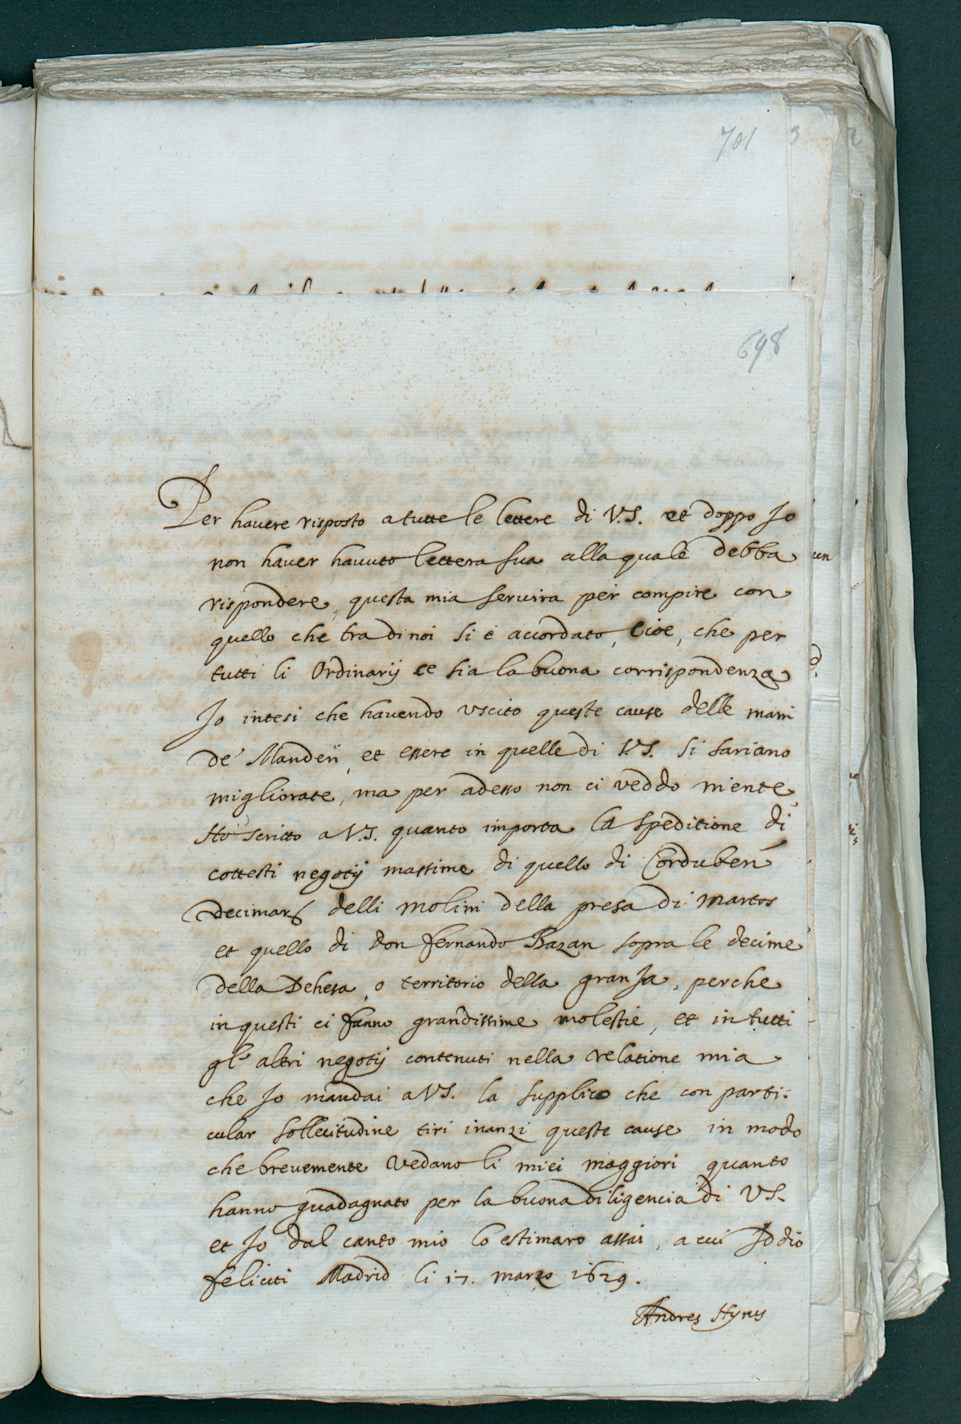 701 3 2
698
Per havere risposto a tutte le lettere di V.S. et doppo Jo
non haver havuto lettera sua alla quale debba
rispondere, questa mia servira per compire con
quello che tra di noi si è accordato, cioe, che per
tutti li Ordinarij ce sia la buona corrispondenza
Jo intesi che havendo uscito queste cause delle mani
de' et essere in quelle di V.S. si sariano
migliorate, ma per adesso non ci veddo niente,
Ho scritto a V.S. quanto importa la speditione di
cottesti negotij massime di quello di Corduben
Decimar delli molini della presa di martos
et quello di don fernando Bazan sopra le decime
della Dehesa, o territorio della granJa, perche
in questi ci fanno grandissime molestie, et in tutti
gl' altri negotij contenuti nella relatione mia
che Jo mandai a V.S. la supplico che con parti-
cular sollecitudine tiri inanzi queste cause in modo
che brevemente vedano li miei maggiori quanto
hanno guadagnato per la buona diligencia di V.S.
et Jo dal canto mio lo estimaro assai, a cui Iddio
feliciti Madrid li 17. marzo 1629.
Andres